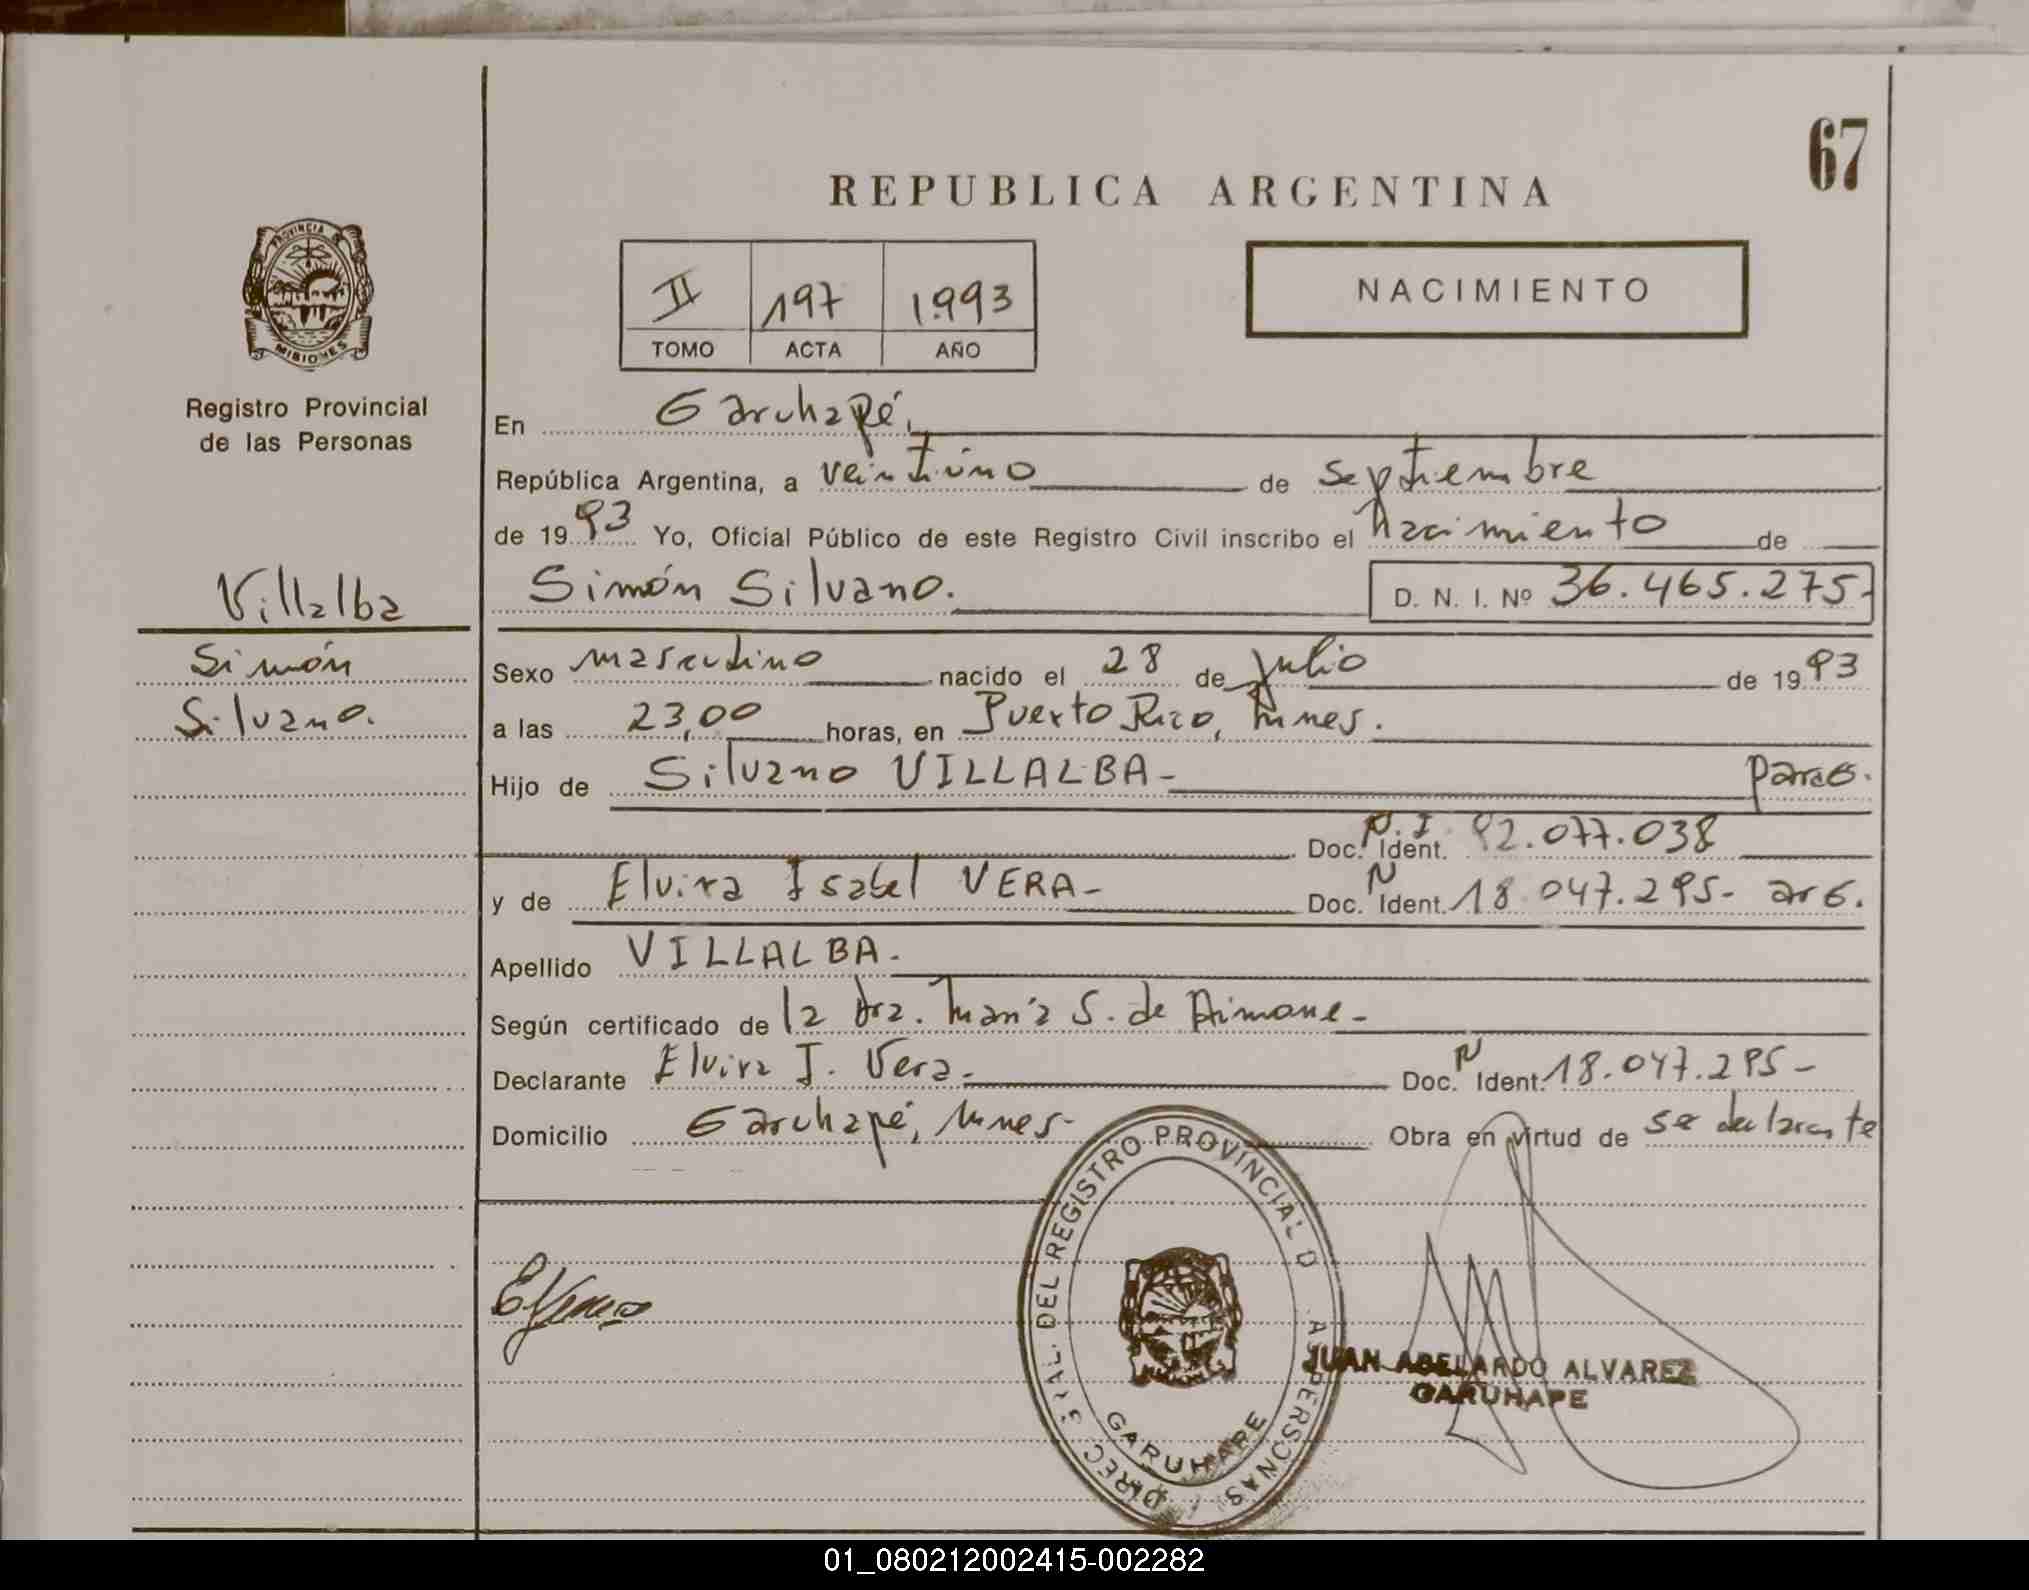 67
REPUBLICA ARGENTINA
PROVINCIA DE
MISIONES
II 197 1.993
TOMO ACTA AÑO
NACIMIENTO
Registro Provincial
de las Personas
Villalba
Simón
Silvano.
En Garuhapé,
República Argentina, a veintiuno de septiembre
de 1993 Yo, Oficial Público de este Registro Civil inscribo el nacimiento de
Simón Silvano. D. N. I. Nº 36.465.275-
Sexo masculino nacido el 28 de julio de 1993
a las 23,00 horas, en Puerto Rico, Mnes.
Hijo de Silvano VILLALBA-
Doc. Ident. N.I 92.077.038
y de Elvira Isabel VERA- Doc. Ident. N 18.047.295- arg.
Apellido VILLALBA.
Según certificado de la Dra. María S. de Aimone-
Declarante Elvira I. Vera- Doc. Ident. N 18.047.295-
Domicilio Garuhapé, Mnes- Obra en virtud de se declarante
DEL REGISTRO PROVINCIAL D AS PERSONAS
GARUHAPE
JUAN ABELARDO ALVAREZ
GARUHAPE
01_080212002415-002282